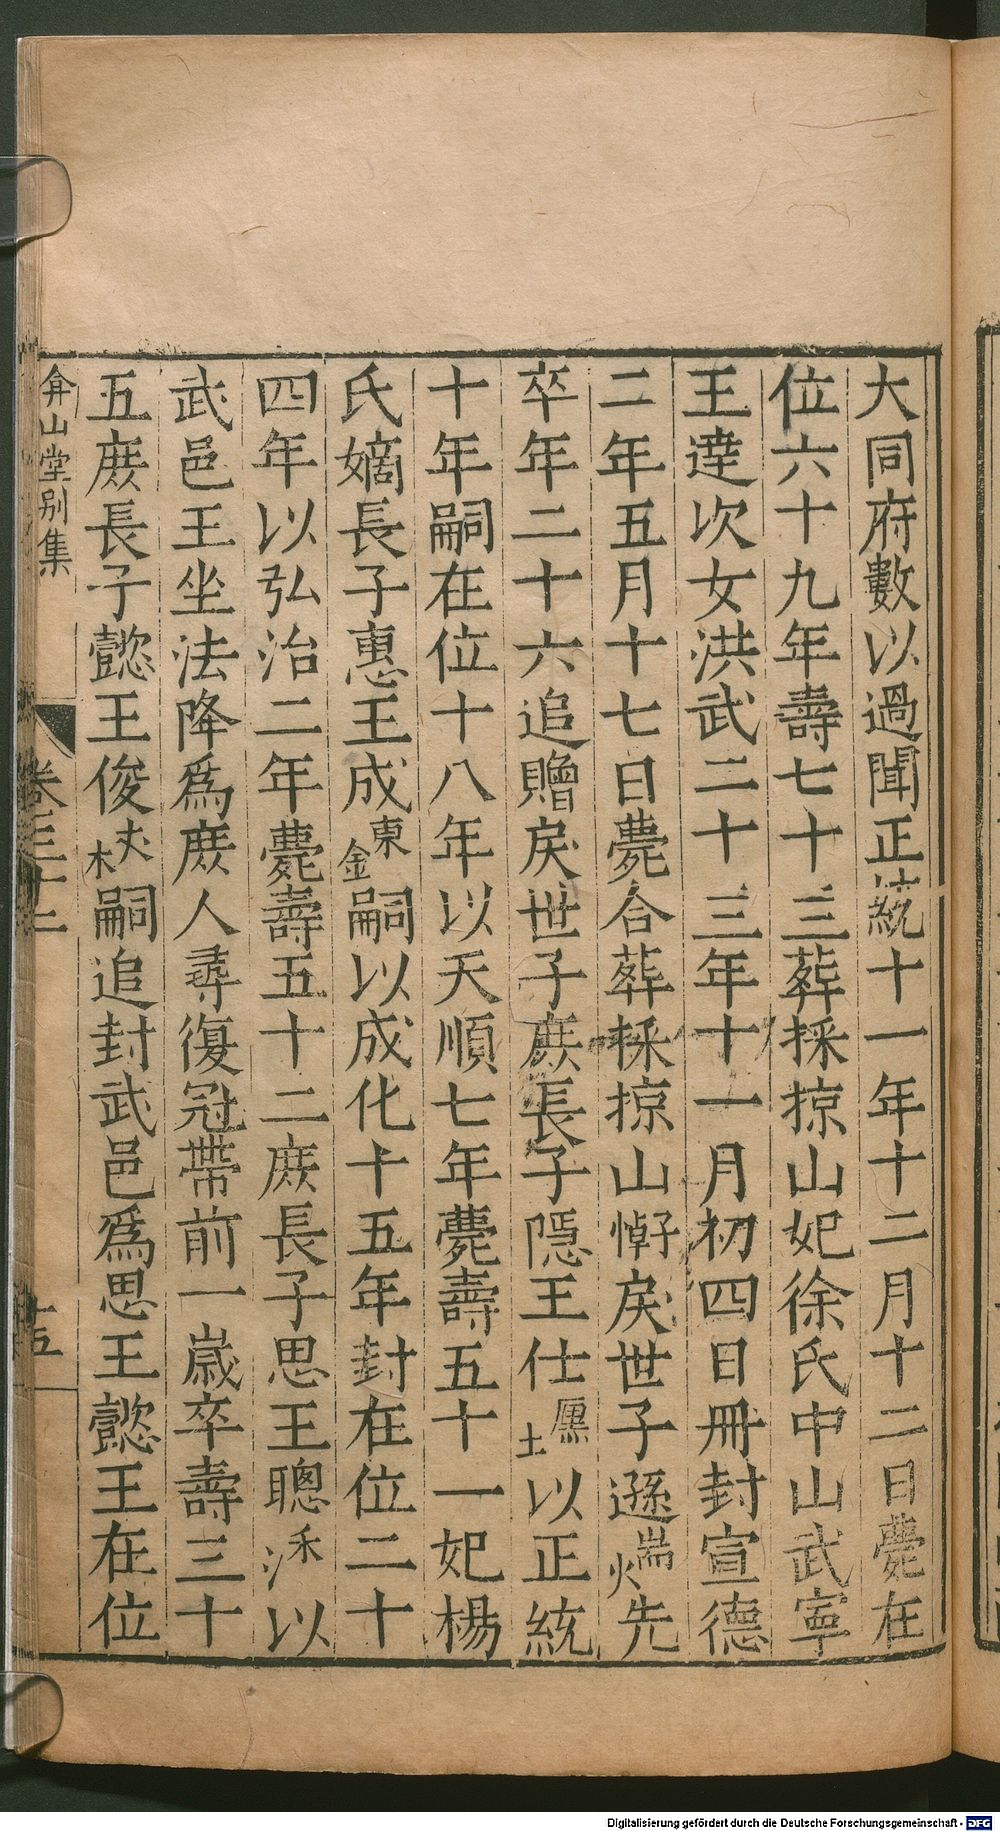 大同府數以過聞正統十一年十二月十二日薨在
位六十九年壽七十三葬採掠山妃徐氏中山武寧
王達次女洪武二十三年十一月初四日冊封宣德
二年五月十七日薨合葬採掠山子悼戾世子遜煓先
卒年二十六追贈戾世子庶長子隱王仕㙺以正統
十年嗣在位十八年以天順七年薨壽五十一妃楊
氏嫡長子惠王成鍊嗣以成化十五年封在位二十
四年以弘治二年薨壽五十二庶長子思王聰沬以
武邑王坐法降爲庶人尋復冠帶前一歲卒壽三十
五庶長子懿王俊杕嗣追封武邑爲思王懿王在位
弇山堂別集
卷三十二
十五
Digitalisierung gefördert durch die Deutsche Forschungsgemeinschaft - DFG